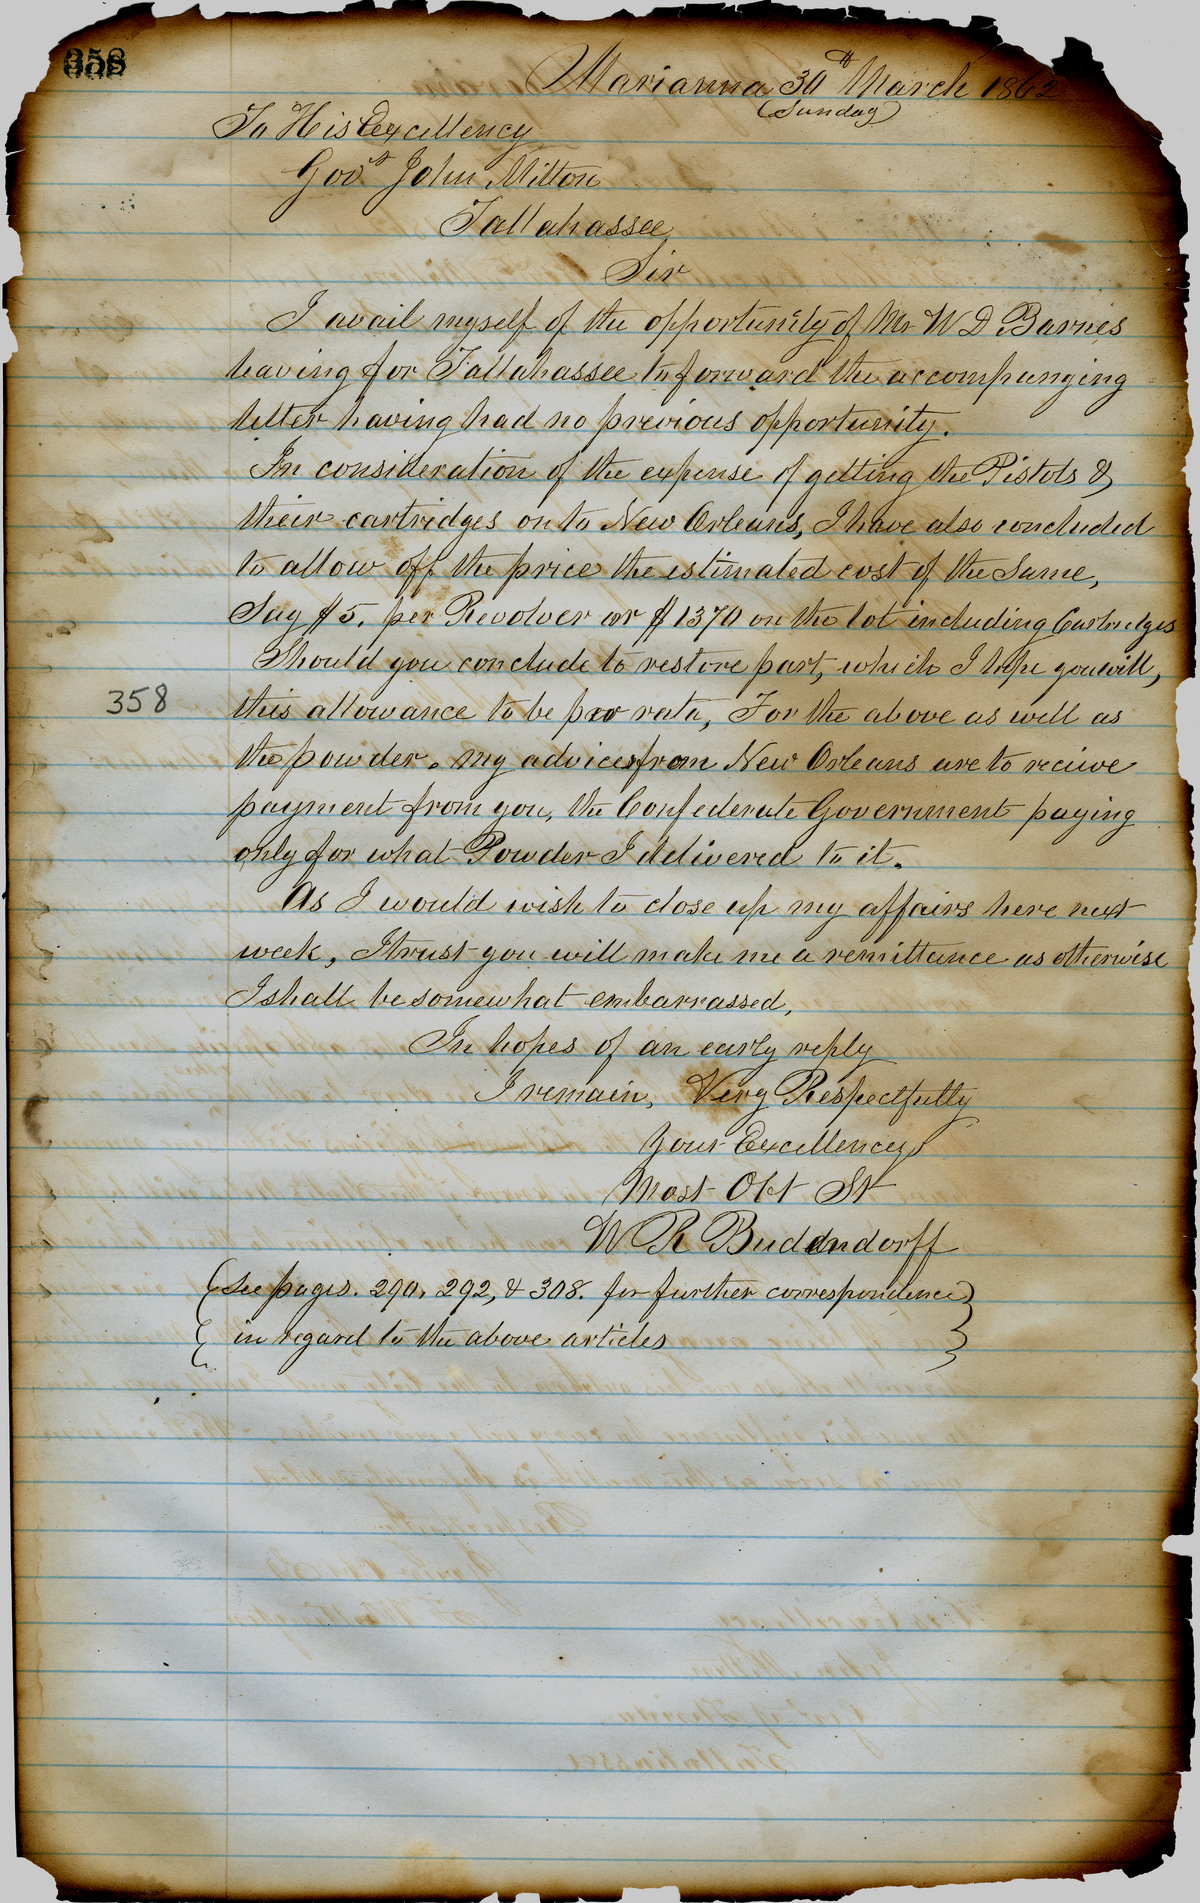 358
Marianna 30th March 1862
(Sunday)
To His Excellency
Govr John Milton
Tallahassee
Sir
I avail myself of the opportunity of Mr W D Barnes
leaving for Tallahassee to forward the accompanying
letter having had no previous opportunity.
In consideration of the expense of getting the Pistols &
their cartridges on to New Orleans, I have also concluded
to allow off the price the estimated cost of the Same,
Say $5. per Revolver or $1370 on the lot including Cartridges
Should you conclude to restore part, which I hope you will,
this allowance to be pro rata, For the above as well as
358
the powder. my advices from New Orleans are to recieve
payment from you, the Confederate Government paying
only for what Powder I delivered to it.
As I would wish to close up my affairs here next
week, I trust you will make me a remittance as otherwise
I shall be somewhat embarrassed,
In hopes of an early reply
I remain, Very Respectfully
Your Excellencys
Most Obt St
W R Buddendorff
(See pages. 290, 292, & 308. for further correspondence)
in regard to the above articles